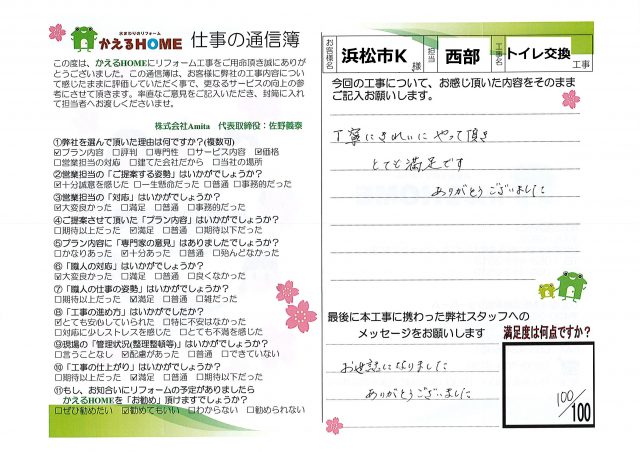 水まわりのリフォーム
かえるHOME 仕事の通信簿
この度は、かえるHOMEにリフォーム工事をご用命頂き誠にありが
とうございました。この通信簿は、お客様に弊社の工事内容につい
て感じたままに評価していただく事で、更なるサービスの向上の参
考にさせて頂きます。率直なご意見をご記入いただき、封筒に入れ
て担当者へお渡しくださいませ。
株式会社Amita 代表取締役：佐野義泰
①弊社を選んで頂いた理由は何ですか?(複数可)
☑プラン内容 □評判 □専門性 □サービス内容 ☑価格
□営業担当の対応 □建てた会社だから □当社の場所
②営業担当の「ご提案する姿勢」はいかがでしょうか?
☑十分誠意を感じた □一生懸命だった □普通 □事務的だった
③営業担当の「対応」はいかがでしょうか?
☑大変良かった □満足 □普通 □事務的だった
④ご提案させて頂いた「プラン内容」はいかがでしょうか?
□期待以上だった ☑満足 □普通 □期待以下だった
⑤プラン内容に「専門家の意見」はありましたでしょうか?
□かなりあった ☑十分あった □普通 □殆んどなかった
⑥「職人の対応」はいかがでしょうか?
☑大変良かった □満足 □普通 □良くなかった
⑦「職人の仕事の姿勢」はいかがでしょうか?
□期待以上だった ☑満足 □普通 □雑だった
⑧「工事の進め方」はいかがでしたか?
☑とても安心していられた □特に不安はなかった
□対応に少しストレスを感じた □とても不満を感じた
⑨現場の「管理状況(整理整頓等)」はいかがでしょうか?
□言うことなし ☑配慮があった □普通 □できていない
⑩「工事の仕上がり」はいかがでしょうか?
□期待以上だった ☑満足 □普通 □期待以下だった
⑪もし、お知合いにリフォームの予定がありましたら
かえるHOMEを「お勧め」頂けますでしょうか?
□ぜひ勧めたい ☑勧めてもいい □わからない □勧められない
お客様名 浜松市K 様 担当 西部 工事名 トイレ交換 工事
今回の工事について、お感じ頂いた内容をそのまま
ご記入お願いします。
丁寧にきれいにやって頂き
とても満足です
ありがとうございました
最後に本工事に携わった弊社スタッフへの
メッセージをお願いします
満足度は何点ですか?
お世話になりました
ありがとうございました
100/100